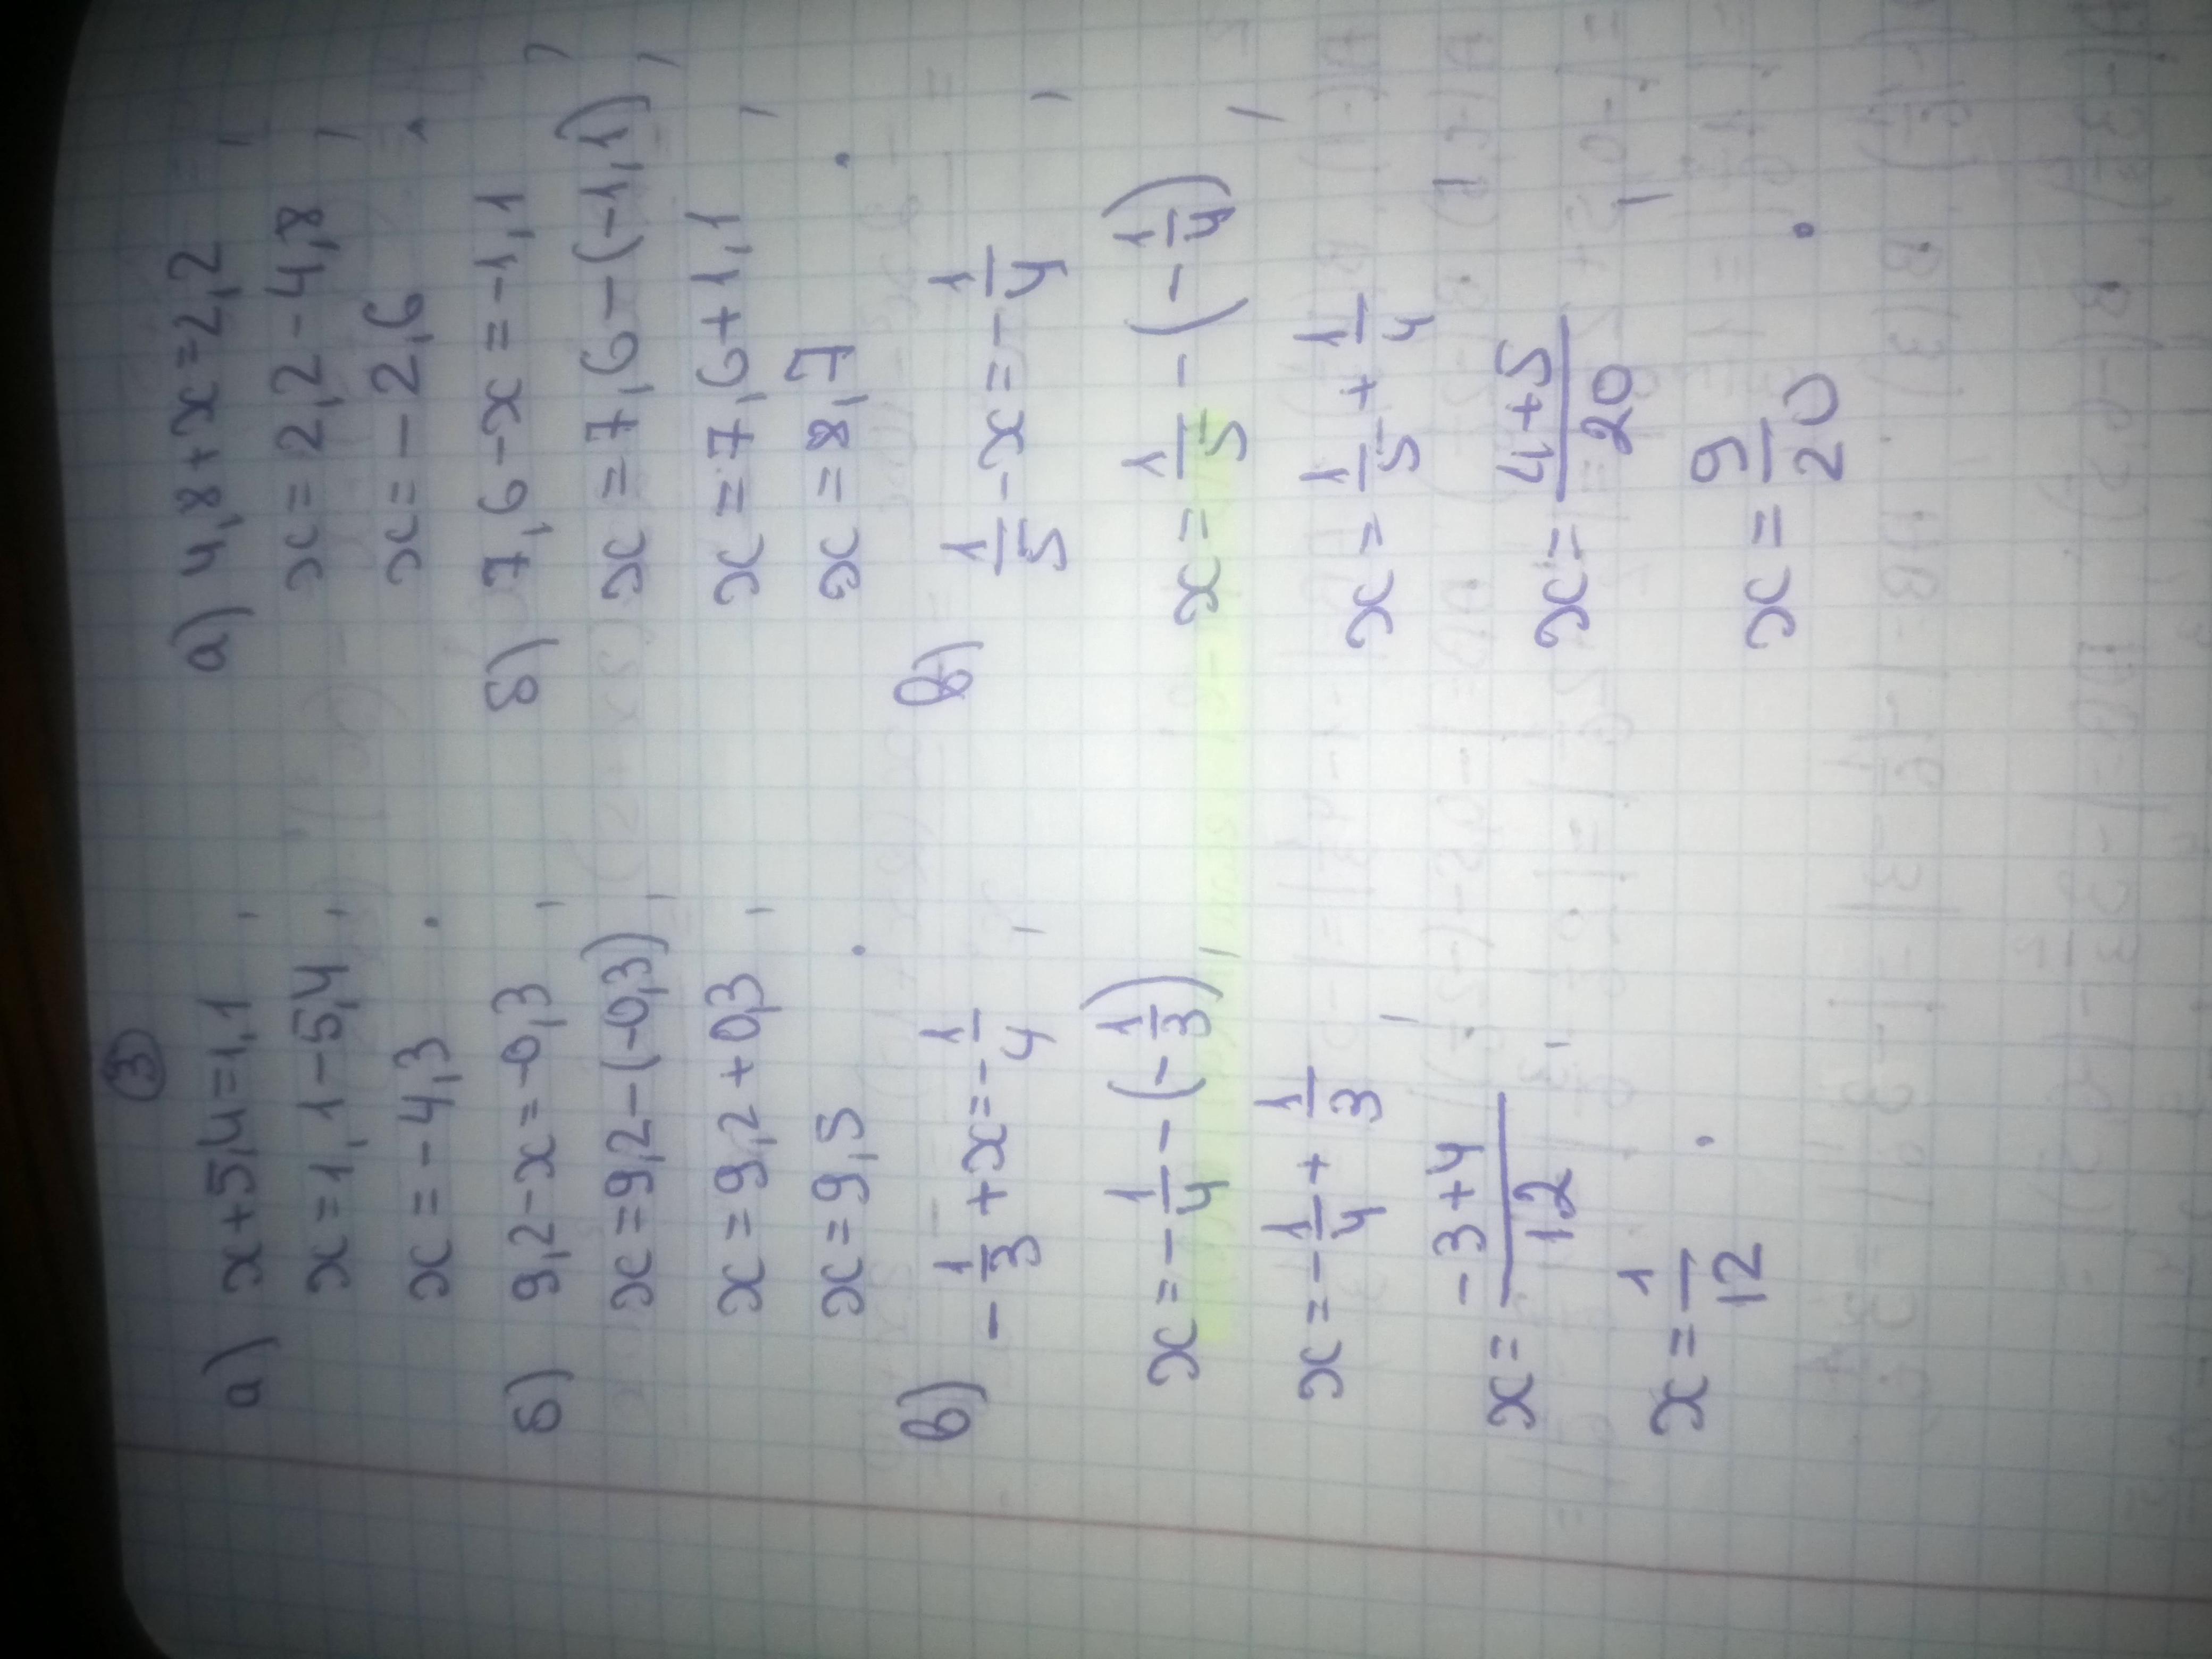 ③
а) x+5,4=1,1,
x=1,1-5,4,
x=-4,3.
б) 9,2-x=-0,3,
x=9,2-(-0,3),
x=9,2+0,3,
x=9,5.
в) -1/3+x=-1/4,
x=-1/4-(-1/3),
x=-1/4+1/3,
x=-3+4/12,
x=1/12.
а) 4,8+x=2,2,
x=2,2-4,8,
x=-2,6.
б) 7,6-x=-1,1,
x=7,6-(-1,1),
x=7,6+1,1,
x=8,7.
в) 1/5-x=-1/4,
x=1/5-(-1/4),
x=1/5+1/4,
x=4+5/20,
x=9/20.